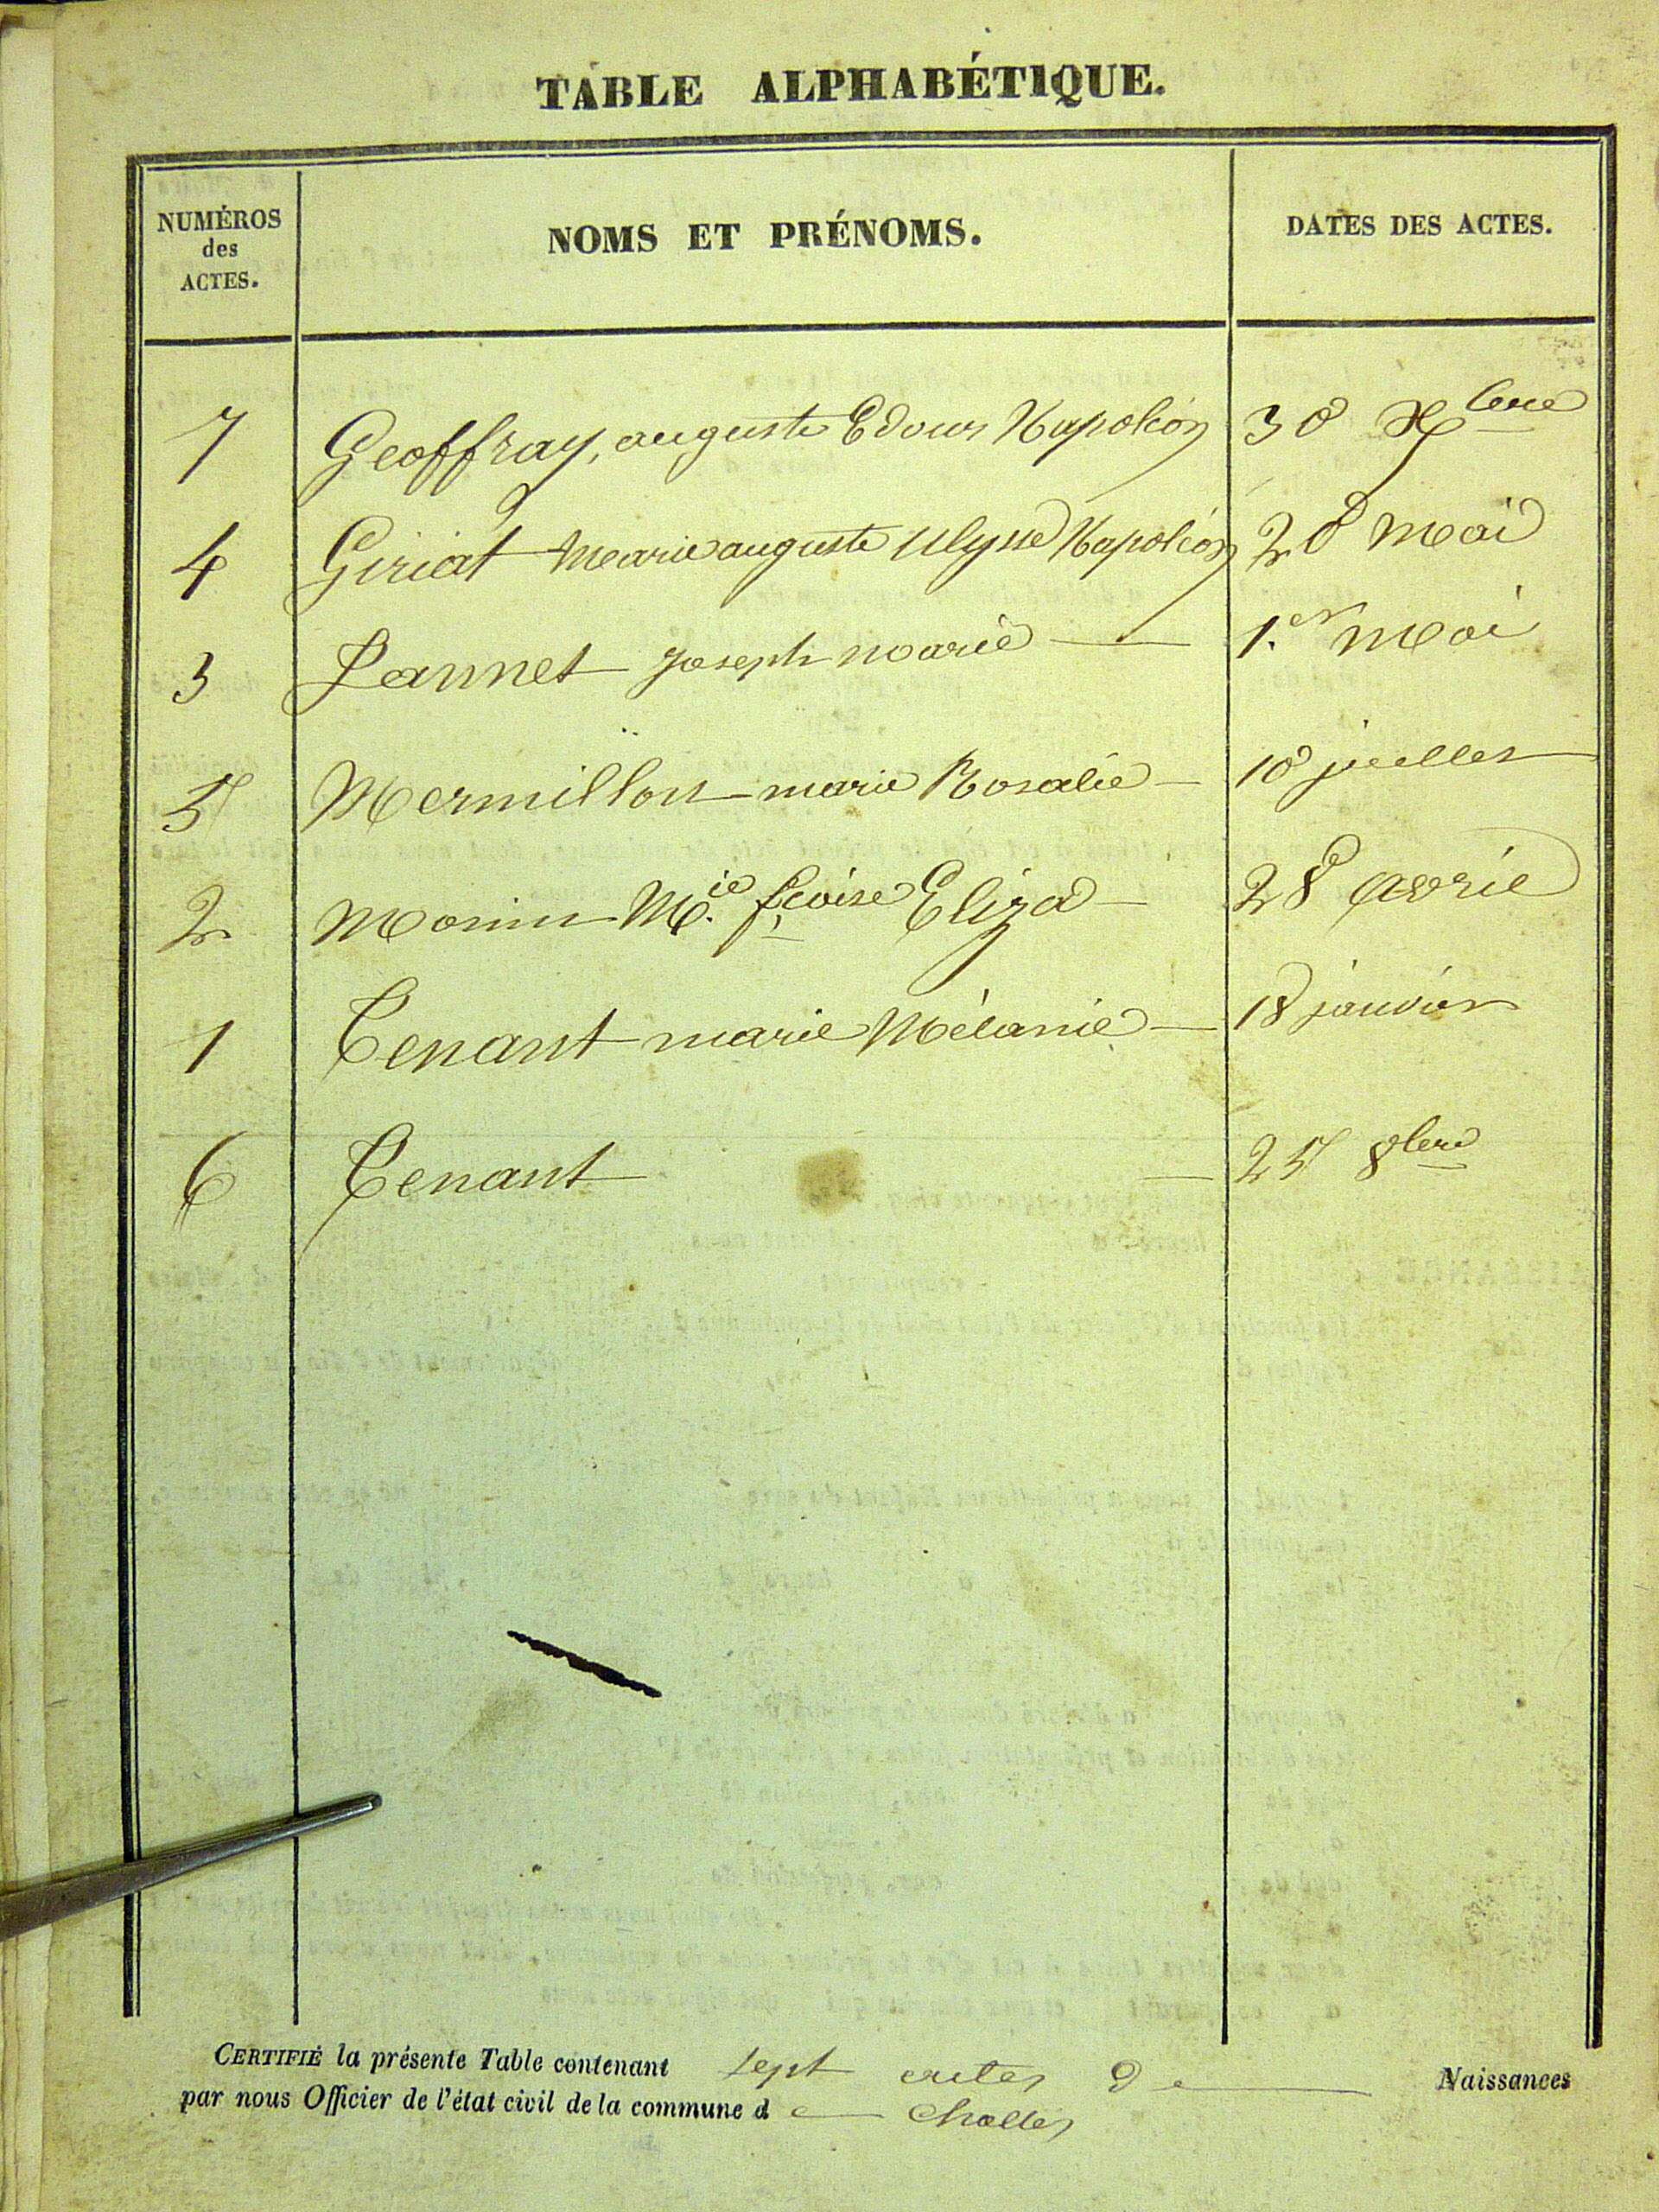 TABLE ALPHABÉTIQUE.
NUMÉROS
des
ACTES.
NOMS ET PRÉNOMS.
DATES DES ACTES.
7 Geoffray, auguste Edour Napoléon 30 Xbre
4 Giriat Marie auguste Ulysse Napoléon 20 Mai
3 Jannet Joseph marie 1.er Mai
5 Mermillon marie Rosalie 10 juillet
2 Morin M.ie fcoise Eliza 28 avril
1 Tenant marie Mélanie 18 janvier
6 Tenant 25 8bre
CERTIFIÉ la présente Table contenant sept actes de Naissances
par nous Officier de l'état civil de la commune de Challes